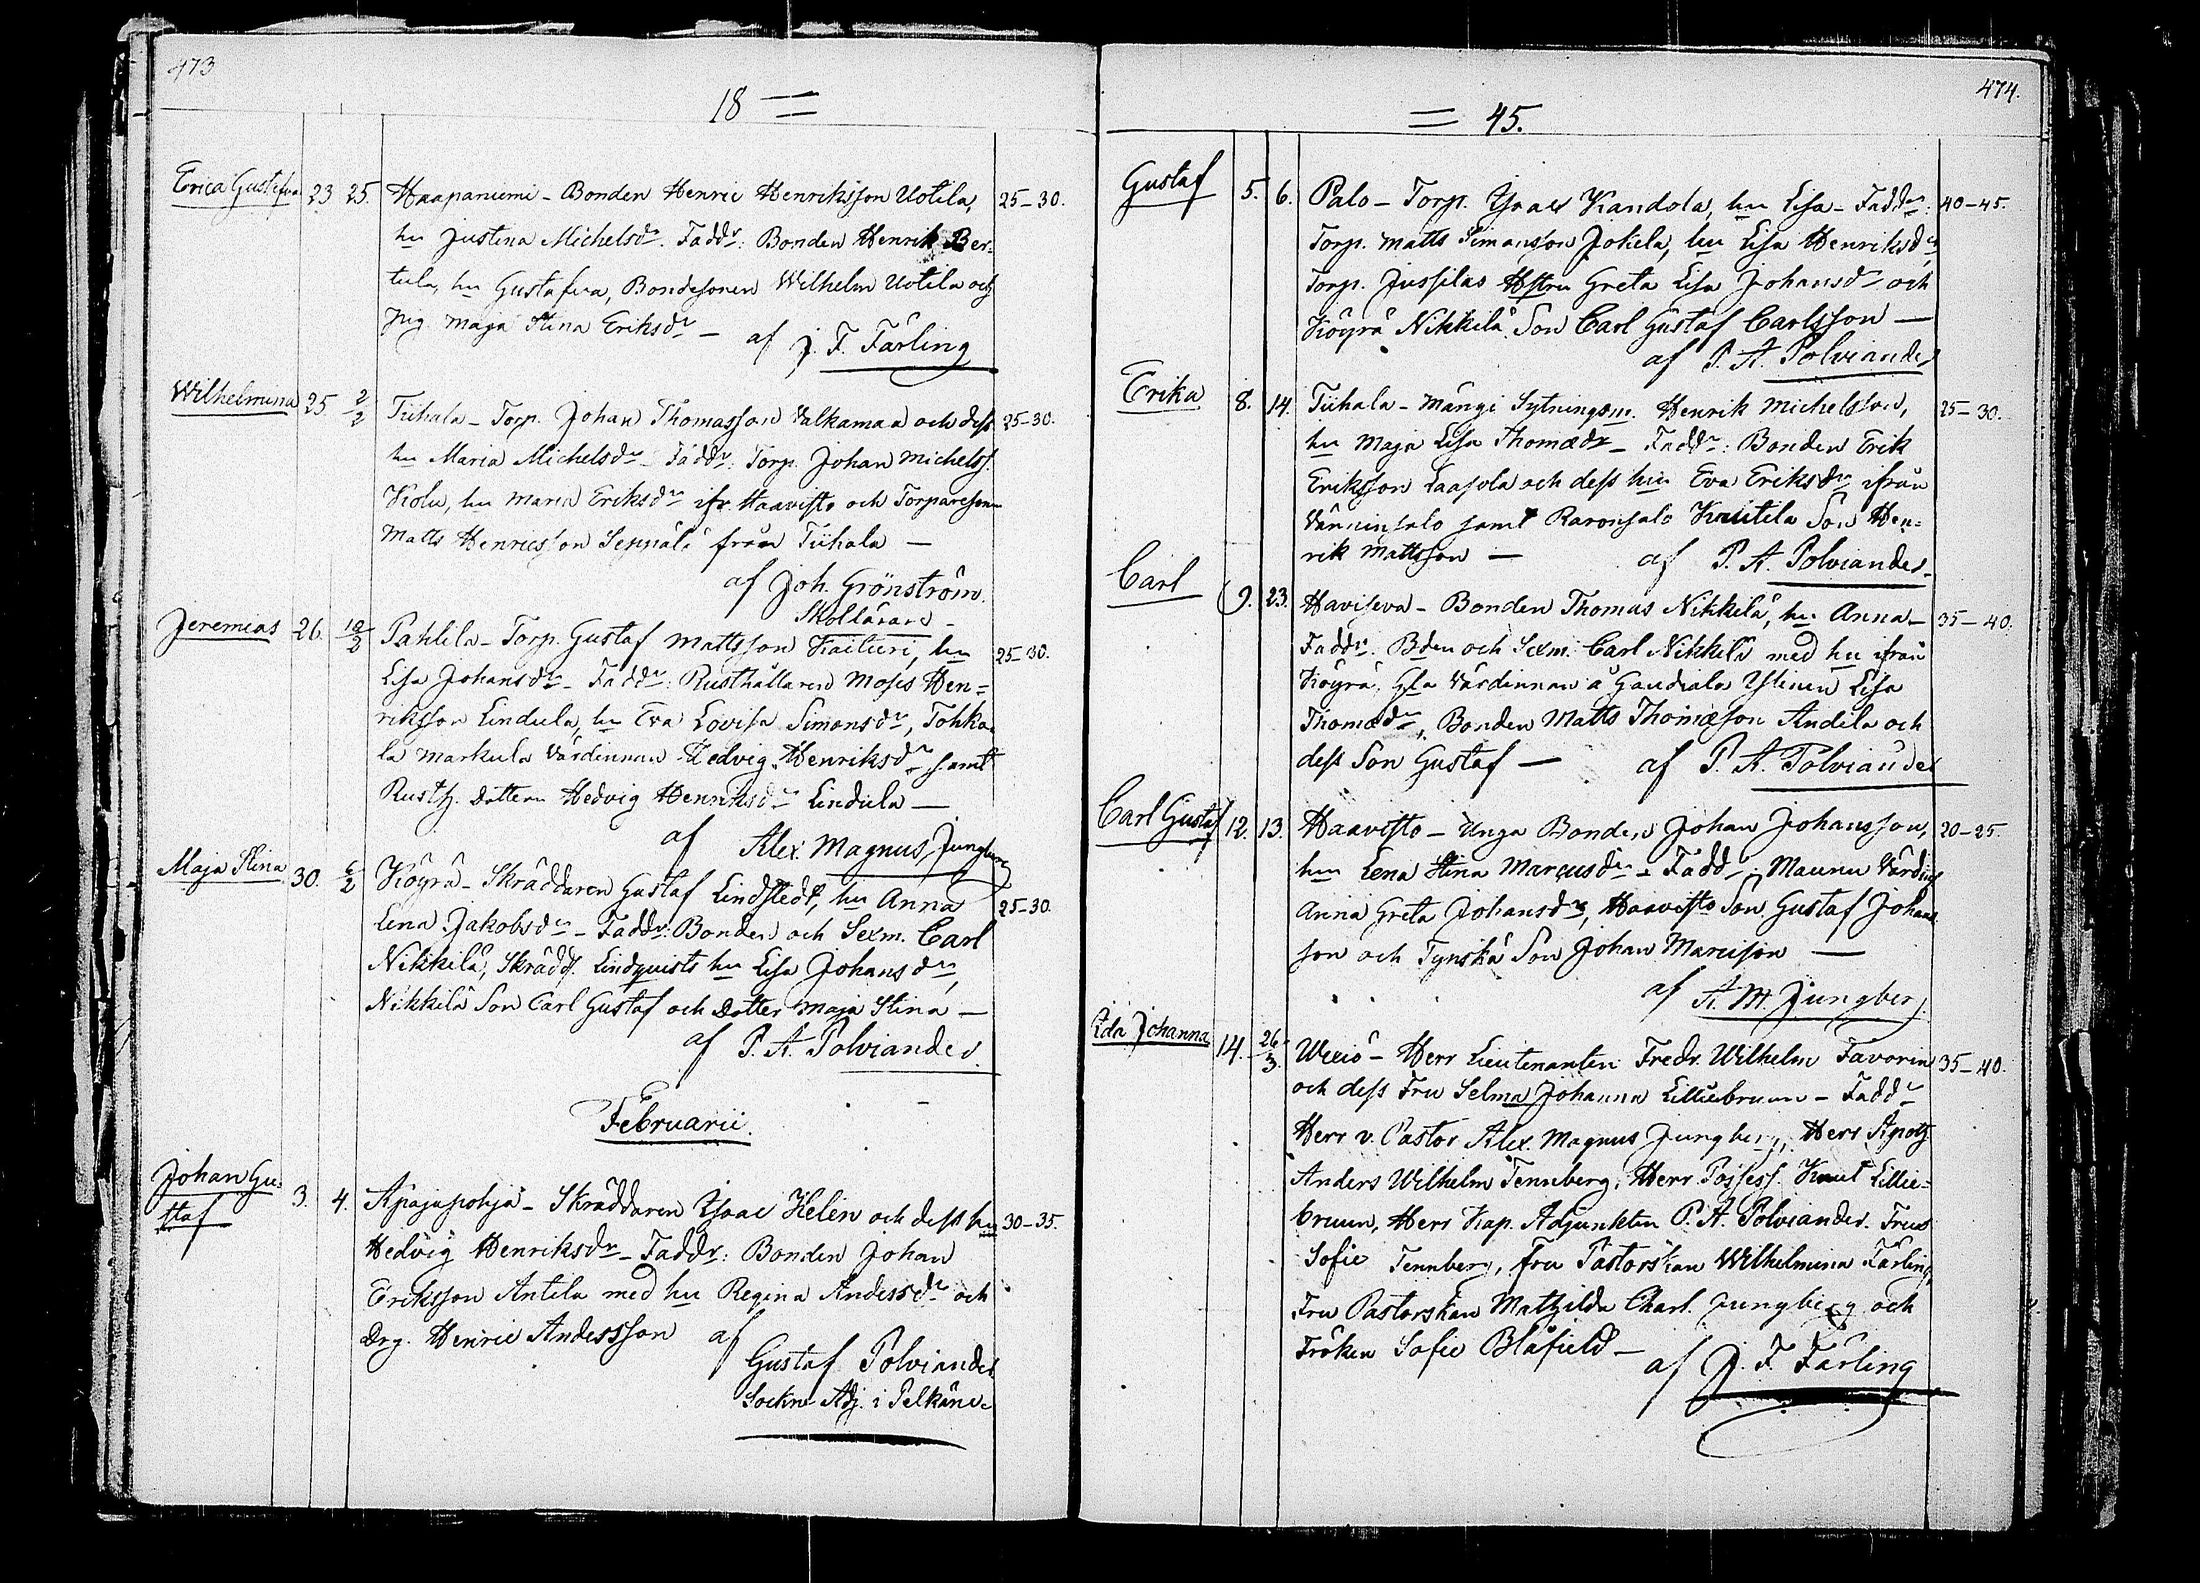 473
18 =
Erica Gustafva 23 25. Haapaniemi - Bonden Henric Henriksson Uotila, 25-30.
hu Justina Michelsdr. Faddr: Bonden Henrik Ber-
tula, hu Gustafva, Bondesonen Wilhelm Uotila och
Pig. Maja Stina Eriksdr -
af J. F. Färling
Wilhelmina 25 2/2 Tiihala - Torp. Johan Thomasson Valkamaa och dess 25-30.
hu Maria Michelsdr - Faddr: Torp. Johan Michelss.
Kolu, hu Maria Eriksdr ifr. Haavisto och Torparesonen
Matts Henricsson Seppälä från Tiihala -
af Joh. Grönström.
Skollärare -
Jeremias 26. 10/2 Pahlila - Torp. Gustaf Mattsson Kaituri, hu 25-30.
Lisa Johansdr - Faddr: Rusthållaren Moses Hen=
riksson Lindula, hu Eva Lovisa Simonsdr, Tohka-
la Markula Värdinnan Hedvig Henriksdr samt
Rusth. dottern Hedvig Henriksdr Lindula -
af Alex. Magnus Jungberg
Maja Stina 30. 6/2 Köyrä - Skräddaren Gustaf Lindstedt, hu Anna 25-30.
Lena Jakobsdr - Faddr: Bonden och Sexm. Carl
Nikkilä, Skrädd. Lindquists hu Lisa Johansdr,
Nikkilä Son Carl Gustaf och Dotter Maja Stina -
af P. A. Polviander.
Februarii.
Johan Gu- 3. 4. Apajapohja - Skräddaren Isaac Helén och dess hu 30-35.
staf
Hedvig Henriksdr - Faddr: Bonden Johan
Eriksson Antila med hu Regina Andersdr och
Drg. Henric Andersson af
Gustaf Polviander.
Sockne Adj. i Pelkäne.
474.
= 45.
Gustaf 5. 6. Palo - Torp. Isaac Kandola, hu Lisa - Faddr: 40-45.
Torp. Matts Simonsson Jokela, hu Lisa Henriksdr,
Torp. Jussilas Hstru Greta Lisa Johansdr och
Köyrä Nikkilä Son Carl Gustaf Carlsson -
af P. A. Polviander
Erika 8. 14. Tiihala - Mångi Sytningsm. Henrik Michelsson, 25-30.
hu Maja Lisa Thomædr - Faddr: Bonden Erik
Eriksson Laasola och dess hu Eva Eriksdr ifrån
Vänninsalo samt Raronsalo Knutila Son Hen=
rik Mattsson - af P. A. Polviander.
Carl 9. 23. Haviseva - Bonden Thomas Nikkilä, hu Anna - 35-40.
Faddr: Bden och Sexm. Carl Nikkilä med hu ifrån
Köyrä, Gla Värdinnan å Gaudiala Ylinen Lisa
Thomædr, Bonden Matts Thomæson Andila och
dess Son Gustaf - af P. A. Polviander
Carl Gustaf 12. 13. Haavisto - Unga Bonden Johan Johansson, 20-25.
hu Lena Stina Marcusdr - Faddr: Maunu Värdins
Anna Greta Johansdr, Haavisto Son Gustaf Johans
son och Tynskä Son Johan Marcison -
af A. M. Jungberg.
Ida Johanna 14. 26/3. Wexiö - Herr Lieutenanten Fredr. Wilhelm Favorin 35-40.
och dess Fru Selma Johanna Lilliebrunn - Faddr
Herr v. Pastor Alex. Magnus Jungberg, Herr Apoth
Anders Wilhelm Tennberg, Herr Possess. Knut Lillie-
brunn, Herr Kap. Adjunkten P. A. Polviander. Frun
Sofie Tennberg, Fru Pastorskan Wilhelmina Färling,
Fru Pastorskan Mathilda Charl. Jungberg och
Fröken Sofie Blåfield -
af J. F. Färling